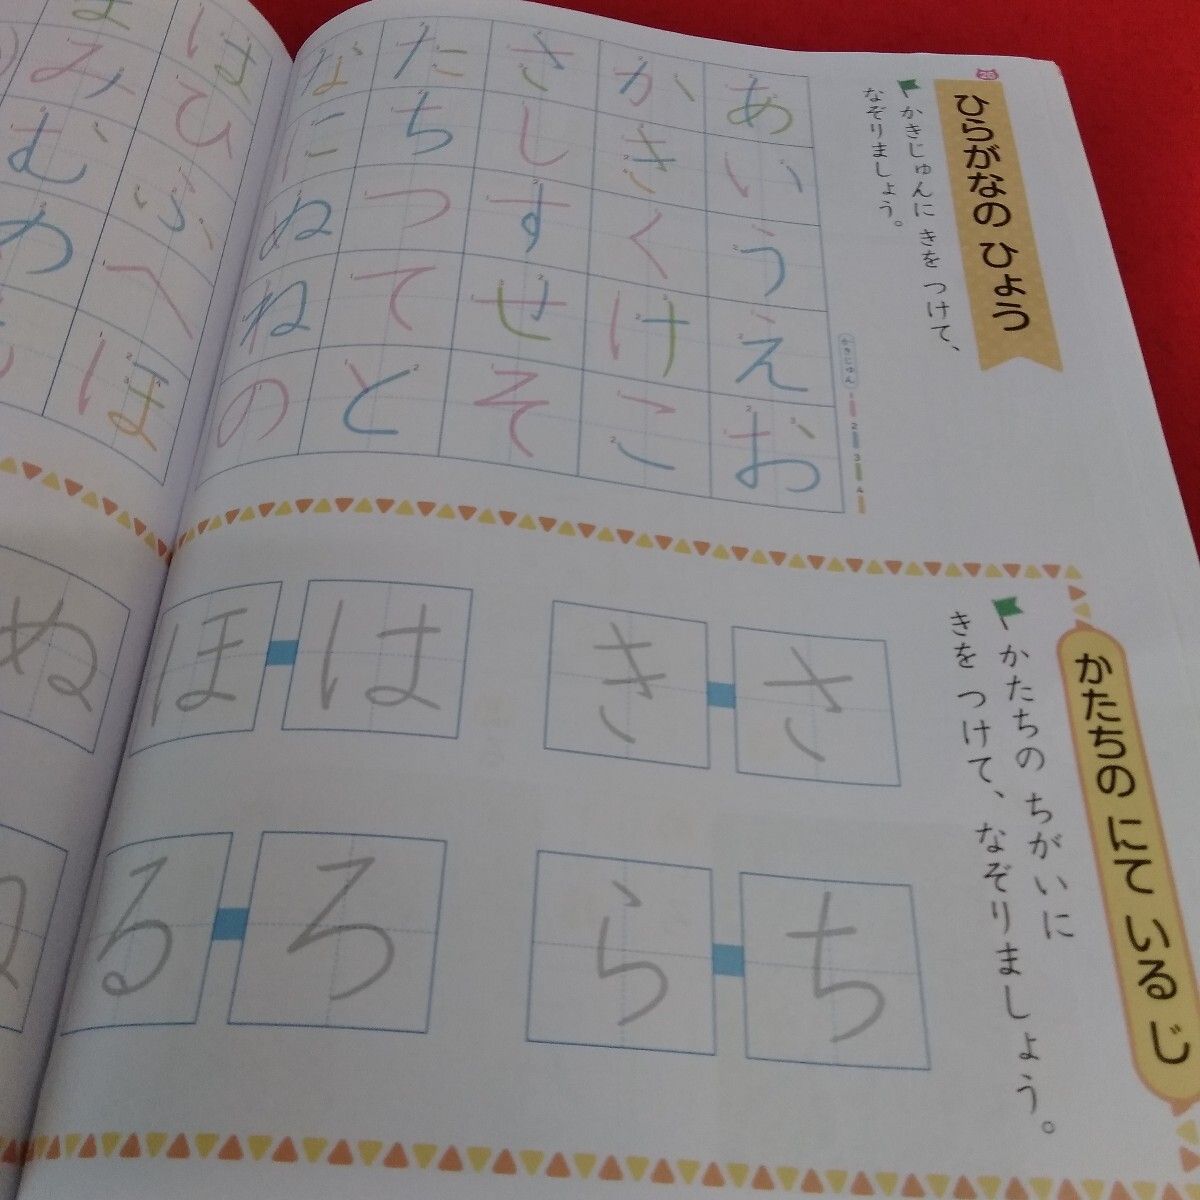 26
ひらがなの ひょう
かきじゅんに きを つけて、
なぞりましょう。
かきじゅん
1
2
3
4
あ
い
う
え
お
か
き
く
け
こ
さ
し
す
せ
そ
た
ち
つ
て
と
な
に
ぬ
ね
の
は
ひ
ふ
へ
ほ
ま
み
む
め
かたちの にて いる じ
かたちの ちがいに
きを つけて、なぞりましょう。
さ
き
は
ほ
ぬ
ち
ら
ろ
る